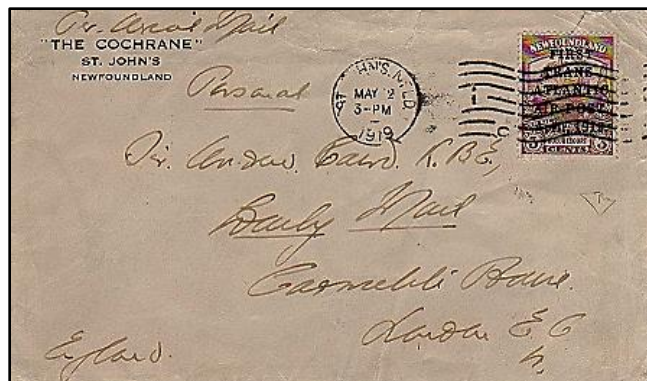 Per Aerial Mail
"THE COCHRANE"
ST. JOHN'S
NEWFOUNDLAND
Personal
ST. JOHN'S. N'F'LD.
MAY 2
3-PM
1919
NEWFOUNDLAND
FIRST
TRANS-
ATLANTIC
AIR POST
April, 1919
3 CENTS 3
Sir Andrew Caird. K.B.E,
Daily Mail
Carmelite House.
London E C
England.